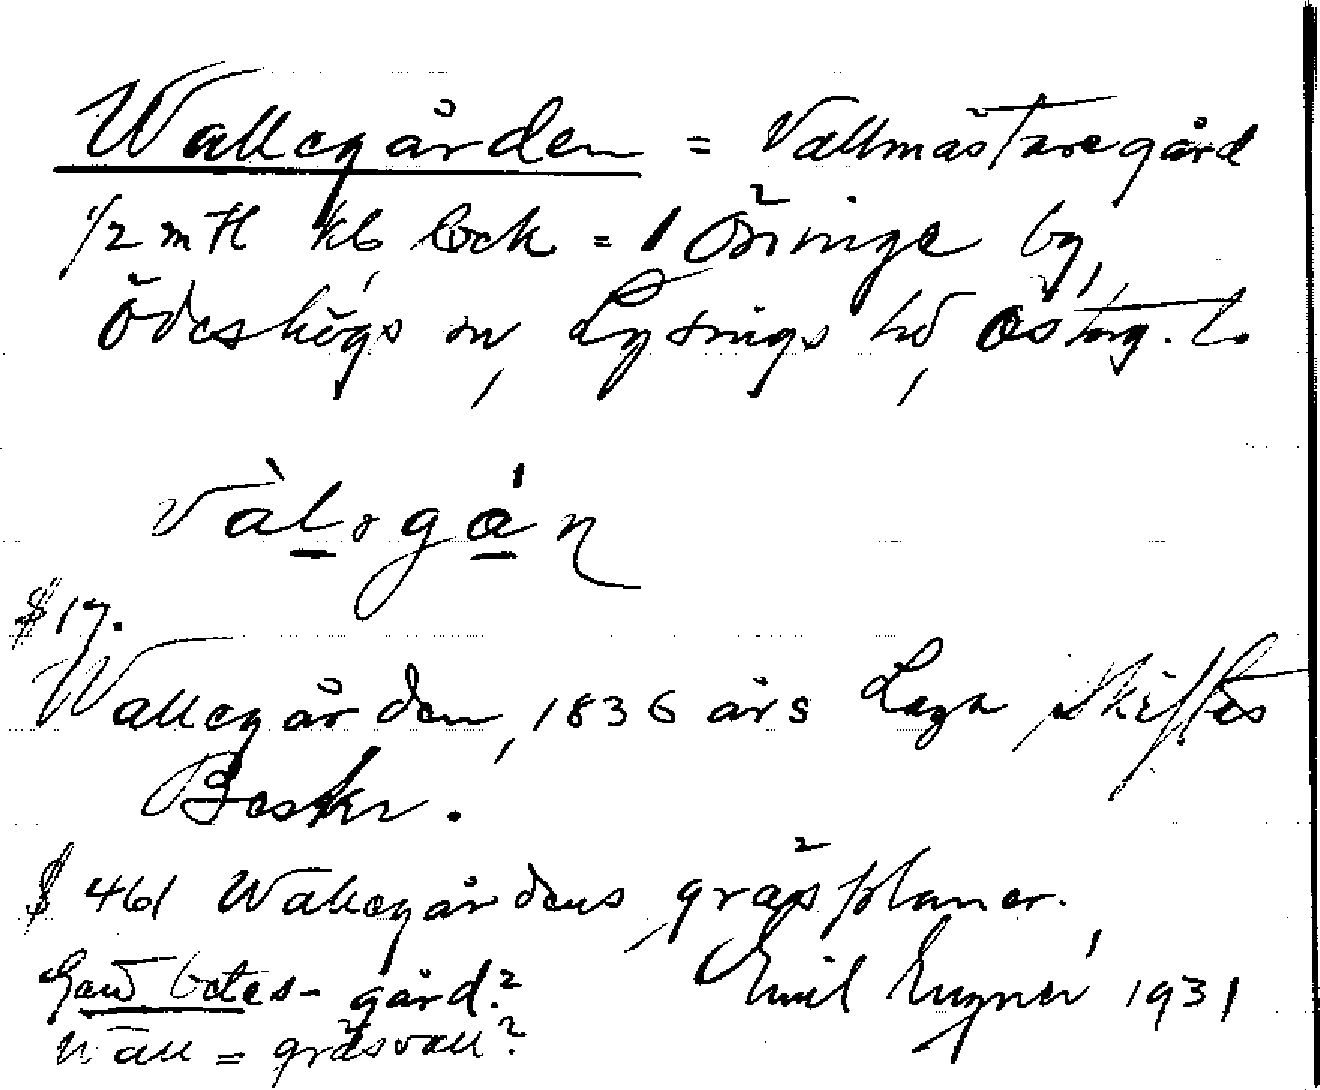 Wallegården = Vallmästaregård
1/2 mtl kb lock = 1 Öninge by,
Ödeshögs sn, Lysings hd, Östtg. l.
vàlsgán
§ 17.
Wallegården, 1836 års Laga Skiftes
Beskr.
§ 461 Wallegårdens gräsplaner.
betes- gård? Emil 1931
Wall = gräsvall?